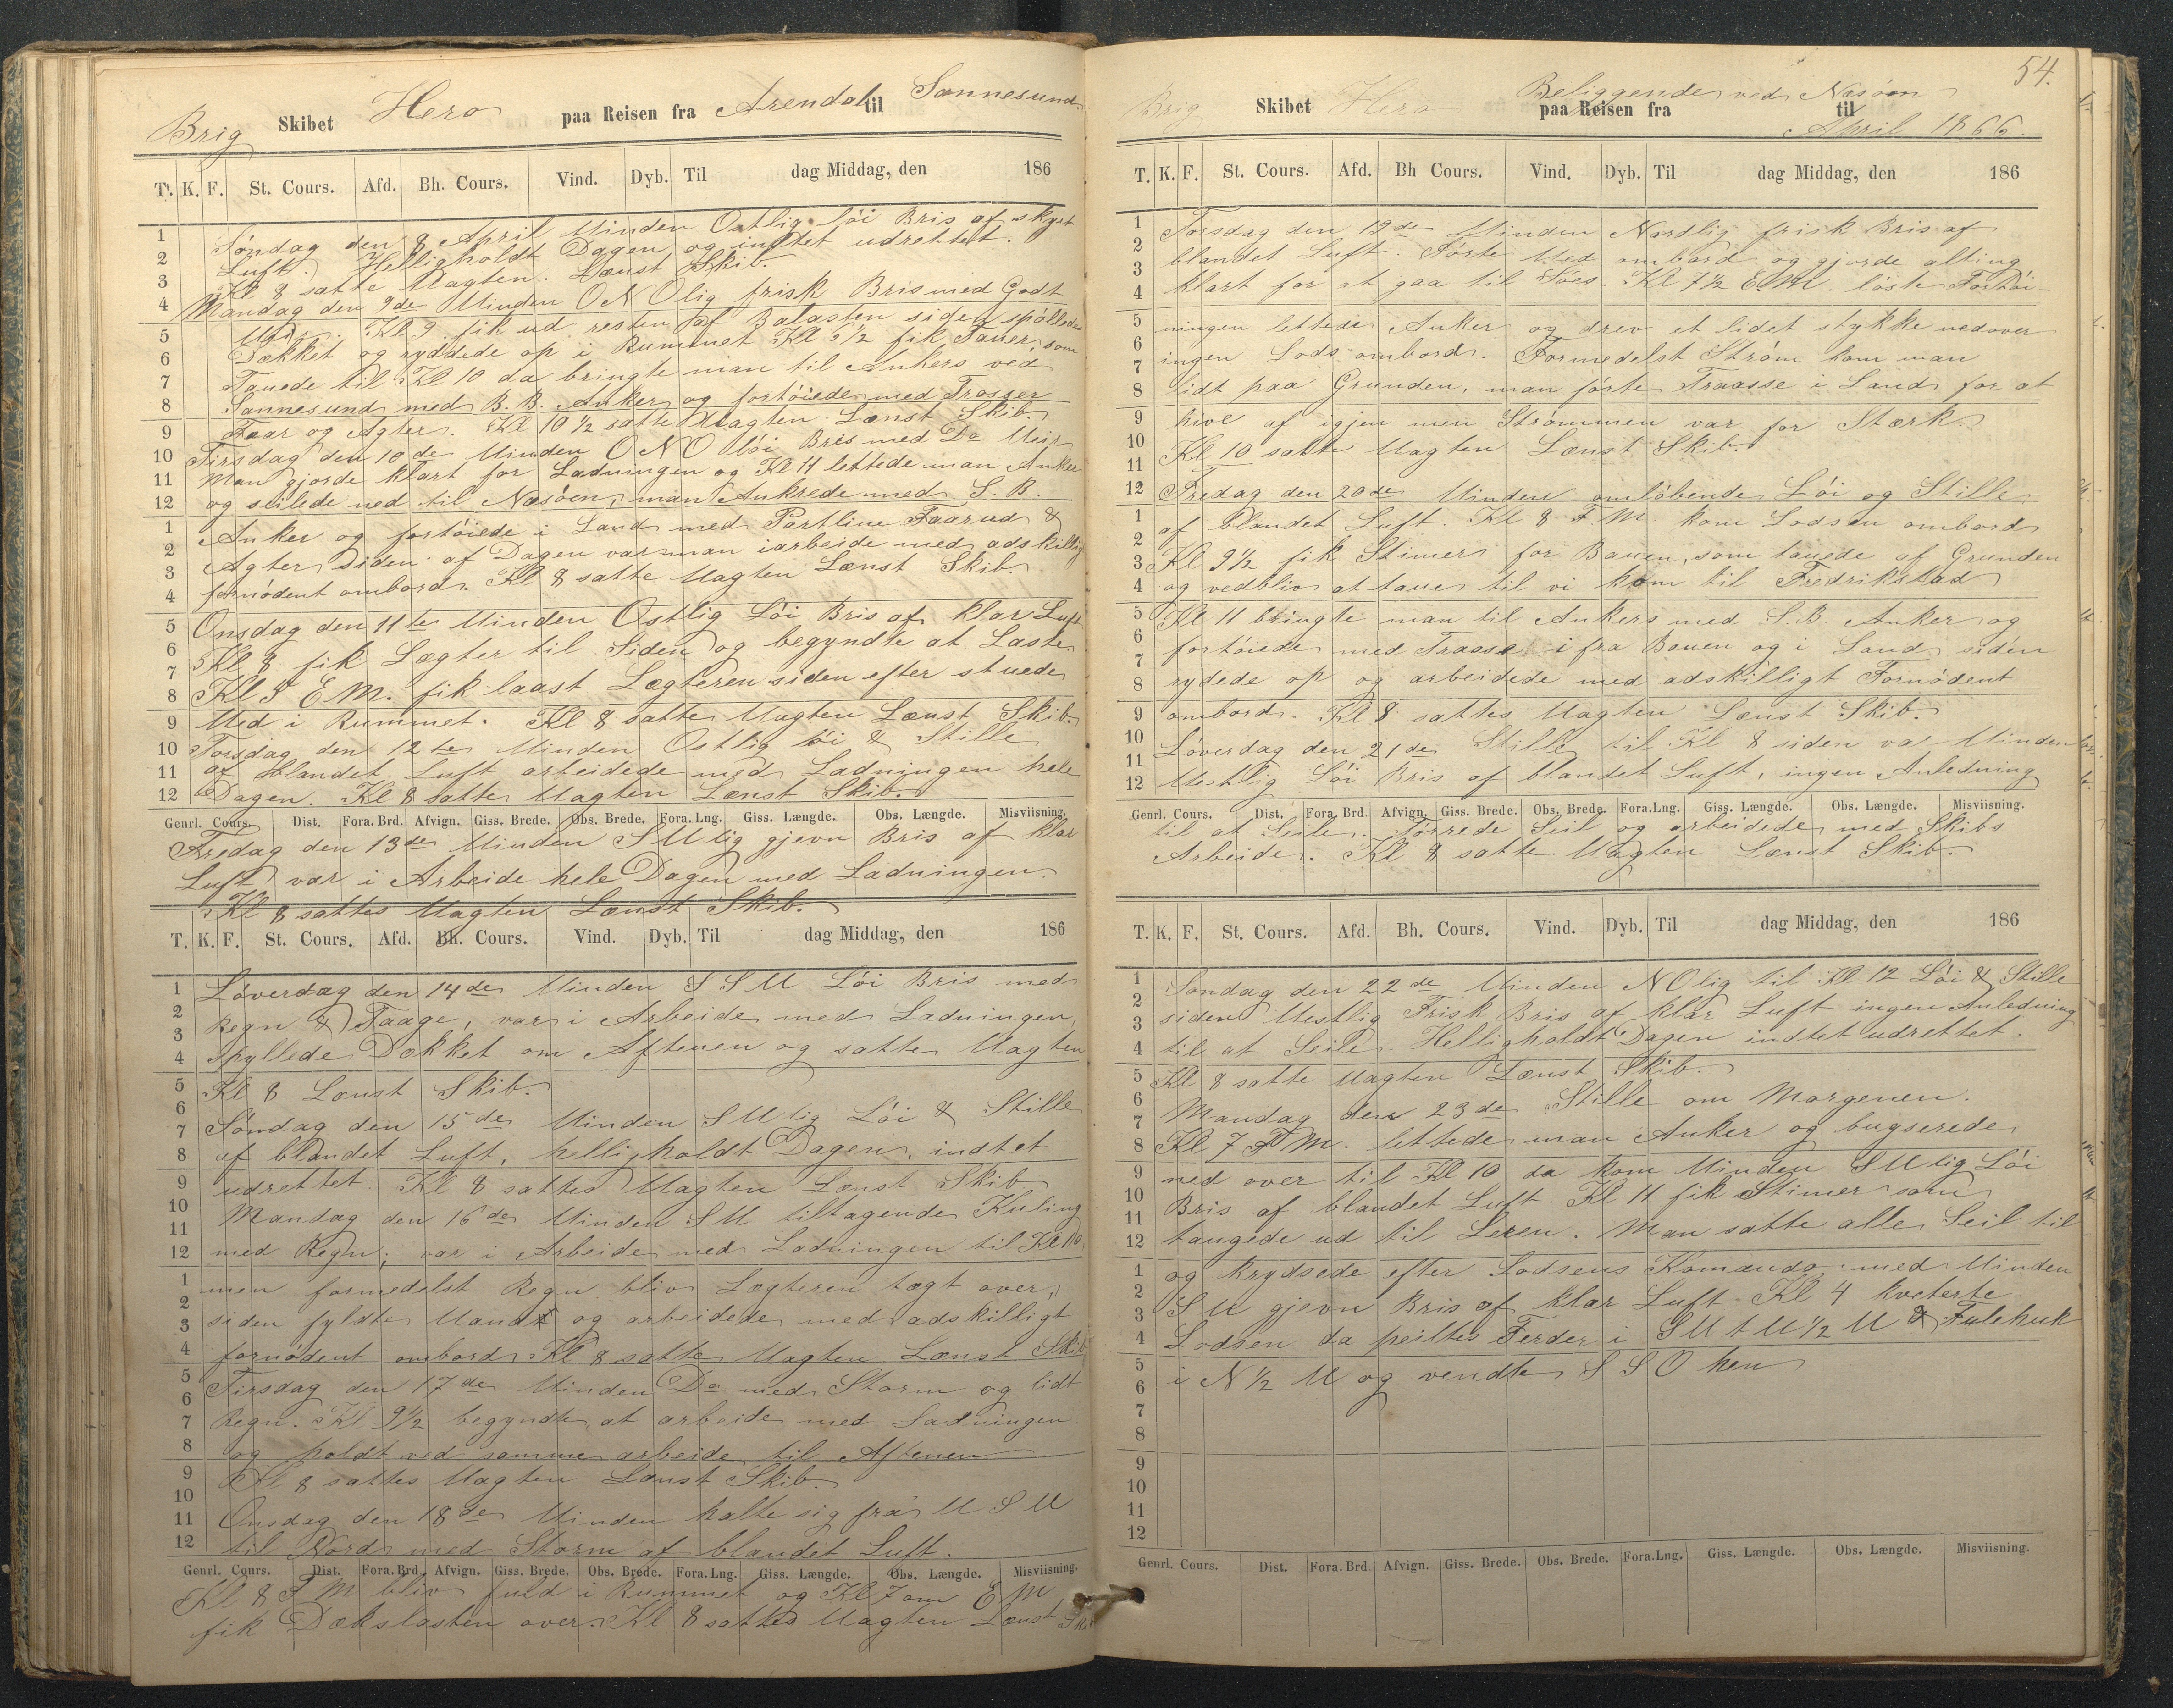 Brig Skibet Hero paa Reisen fra Arendal til Sannesund
T. K. F. St. Cours. Afd. Bh. Cours. Vind. Dyb. Til dag Middag, den 186
1
2
3
4
5
6
7
8
9
10
11
12
1
2
3
4
5
6
7
8
9
10
11
12
Søndag den 8 April Vinden Ostlig löi Bris af skyet
Luft. Helligholdt Dagen og indtet udrettet.
Kl 8 satte Vagten. Lænst Skib.
Mandag den 9de Vinden ONOlig frisk Bris med Godt
Veir. Kl 9 fik ud resten af Balasten siden spöllede
Dækket og ryddede op i Rummet Kl 6½ fik Tauer, som
Tauede til Kl 10 da bringte man til Ankers ved
Sannesund med B.B. Anker og fortöiede med Trosser
Faar og Agter. Kl 10½ satte Vagten Lænst Skib.
Tirsdag den 10de Vinden ONO löi Bris med Do Veir
Man gjorde klart for Ladningen og Kl 11 lettede man Anker
og seilede ned til Næsöen, man Ankrede med S.B.
Anker og fortöiede i Land med Partline Faarud &
Agter siden af Dagen var man i arbeide med adskillig
fornödent ombord. Kl 8 satte Vagten Lænst Skib.
Onsdag den 11te Vinden Ostlig Löi Bris af klar Luft
Kl 8 fik Lægter til Siden og begyndte at Laste
Kl 5 E M. fik laast Lægteren siden efter stuede
Ved i Rummet. Kl 8 satte Vagten Lænst Skib.
Torsdag den 12te Vinden Ostlig löi & Stille
af Blandet Luft arbeidede med Ladningen hele
Dagen. Kl 8 satte Vagten Lænst Skib.
Genrl. Cours. Dist. Fora. Brd. Afvign. Giss. Brede. Obs. Brede. Fora. Lng. Giss. Længde. Obs. Længde. Misviisning.
Fredag den 13de Vinden SVlig gjevn Bris af klar
Luft var i Arbeide hele Dagen med Ladningen.
Kl 8 sattes Vagten Lænst Skib.
T. K. F. St. Cours. Afd. Bh. Cours. Vind. Dyb. Til dag Middag, den 186
1
2
3
4
5
6
7
8
9
10
11
12
1
2
3
4
5
6
7
8
9
10
11
12
Löverdag den 14de Vinden SSV Löi Bris med
Regn & Taage, var i Arbeide med Ladningen,
spyllede Dækket om Aftenen og satte Vagten
Kl 8 Lænst Skib.
Söndag den 15de Vinden SVlig Löi & Stille
af blandet Luft, helligholdt Dagen, indtet
udrettet. Kl 8 sattes Vagten Lænst Skib.
Mandag den 16de Vinden SV tiltagende Kuling
med Regn; var i Arbeide med Ladningen til Kl 10
men formedelst Regn bliv Lægteren lagt over,
siden fyldte Vand og arbeidede med adskilligt
fornödent ombord Kl 8 satte Vagten Lænst Skib
Tirsdag den 17de Vinden Do med Storm og lidt
Regn. Kl 9½ begyndte at arbeide med Ladningen
og holdt ved samme arbeide til Aftenen
Kl 8 sattes Vagten Lænst Skib.
Onsdag den 18de Vinden holte sig fra V S V
til Nord med Storm af blandet Luft.
Genrl. Cours. Dist. Fora. Brd Afvign. Giss. Brede. Obs. Brede. Fora. Lng. Giss. Længde. Obs. Længde. Misviisning.
Kl 8 F M bliv fuld i Rummet og Kl 7 om E M
fik Dækslasten over. Kl 8 sattes Vagten Lænst Skib
54.
Brig Skibet Hero Beliggende ved Næsöen
paa Reisen fra til
April 1866.
T. K. F. St. Cours. Afd. Bh Cours. Vind. Dyb. Til dag Middag, den 186
1
2
3
4
5
6
7
8
9
10
11
12
1
2
3
4
5
6
7
8
9
10
11
12
Torsdag den 19de Vinden Nordlig frisk Bris af
blandet Luft. Förte Ved ombord og gjorde alting
klart for at gaa til Söes. Kl 7½ E.M. löste Fortöi-
ningen lettede Anker og drev et lidet stykke nedover
ingen Lods ombord. Formedelst Ström kom man
lidt paa Grunden, man förte Traasse i Land for at
hive af igjen men Strömmen var for Stærk.
Kl 10 satte Vagten Lænst Skib.
Fredag den 20de Vinden omlöbende Löi og Stille
af blandet Luft. Kl 8 F.M. kom Lodsen ombord
Kl 9½ fik Stimer for Bauen, som tauede af Grunden
og vedbliv at taue til vi kom til Fredrikstad
Kl 11 bringte man til Ankers med S.B. Anker og
fortöiede med Traase i fra Bauen og i Land siden
rydede op og arbeidede med adskilligt Fornödent
ombord. Kl 8 sattes Vagten Lænst Skib.
Löverdag den 21de Stille til Kl 8 siden va Vinden
Vestlig Löi Bris af blandet Luft, ingen Anledning
Genrl. Cours. Dist. Fora. Brd Afvign. Giss. Brede. Obs. Brede. Fora. Lng. Giss. Længde. Obs. Længde. Misviisning.
til at Seile. Törrede Seil og arbeidede med Skibs
Arbeide. Kl 8 satte Vagten Lænst Skib.
T. K. F. St. Cours. Afd. Bh. Cours. Vind. Dyb. Til dag Middag, den 186
1
2
3
4
5
6
7
8
9
10
11
12
1
2
3
4
5
6
7
8
9
10
11
12
Söndag den 22de Vinden NOlig til Kl 12 Löi & Stille
siden Vestlig Frisk Bris af klar Luft ingen Anledning
til at Seile. Helligholdt Dagen indtet udrettet.
Kl 8 satte Vagten Lænst Skib.
Mandag den 23de Stille om Morgenen.
Kl 7 F M. lettede man Anker og bugserede
ned over til Kl 10 da kom Vinden SVlig Löi
Bris af blandet Luft. Kl 11 fik Stimer som
taugede ud til Leren. Man satte alle Seil til
og krydsede efter Lodsens Komando med Vinden
SV gjevn Bris af klar Luft Kl 4 kveterte
Lodsen da peiltes Ferder i SVtV½V & Fulehuk
i N½V og vendte SSO hen
Genrl. Cours. Dist. Fora. Brd Afvign. Giss. Brede. Obs. Brede. Fora. Lng. Giss. Længde. Obs. Længde. Misviisning.